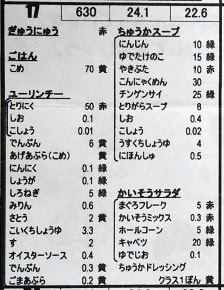 17 630 24.1 22.6
ぎゅうにゅう 赤
ごはん
こめ 70 黄
ユーリンチー
とりにく 50 赤
しお 0.1
こしょう 0.01
でんぷん 6 黄
あげあぶら(こめ) 黄
にんにく 0.1 緑
しょうが 0.1 緑
しろねぎ 5 緑
みりん 0.6
さとう 2 黄
こいくちしょうゆ 3.3
す 2
オイスターソース 0.4
でんぷん 0.3 黄
ごまあぶら 0.2 黄
ちゅうかスープ
にんじん 10 緑
ゆでたけのこ 15 緑
やきぶた 10 赤
こんにゃくめん 30
チンゲンサイ 25 緑
とりがらスープ 8
しお 0.4
こしょう 0.02
うすくちしょうゆ 4
にほんしゅ 0.5
かいそうサラダ
まぐろフレーク 5 赤
かいそうミックス 0.3 赤
ホールコーン 5 緑
キャベツ 20 緑
ゆでじお 0.1
ちゅうかドレッシング
クラス1ぽん 黄